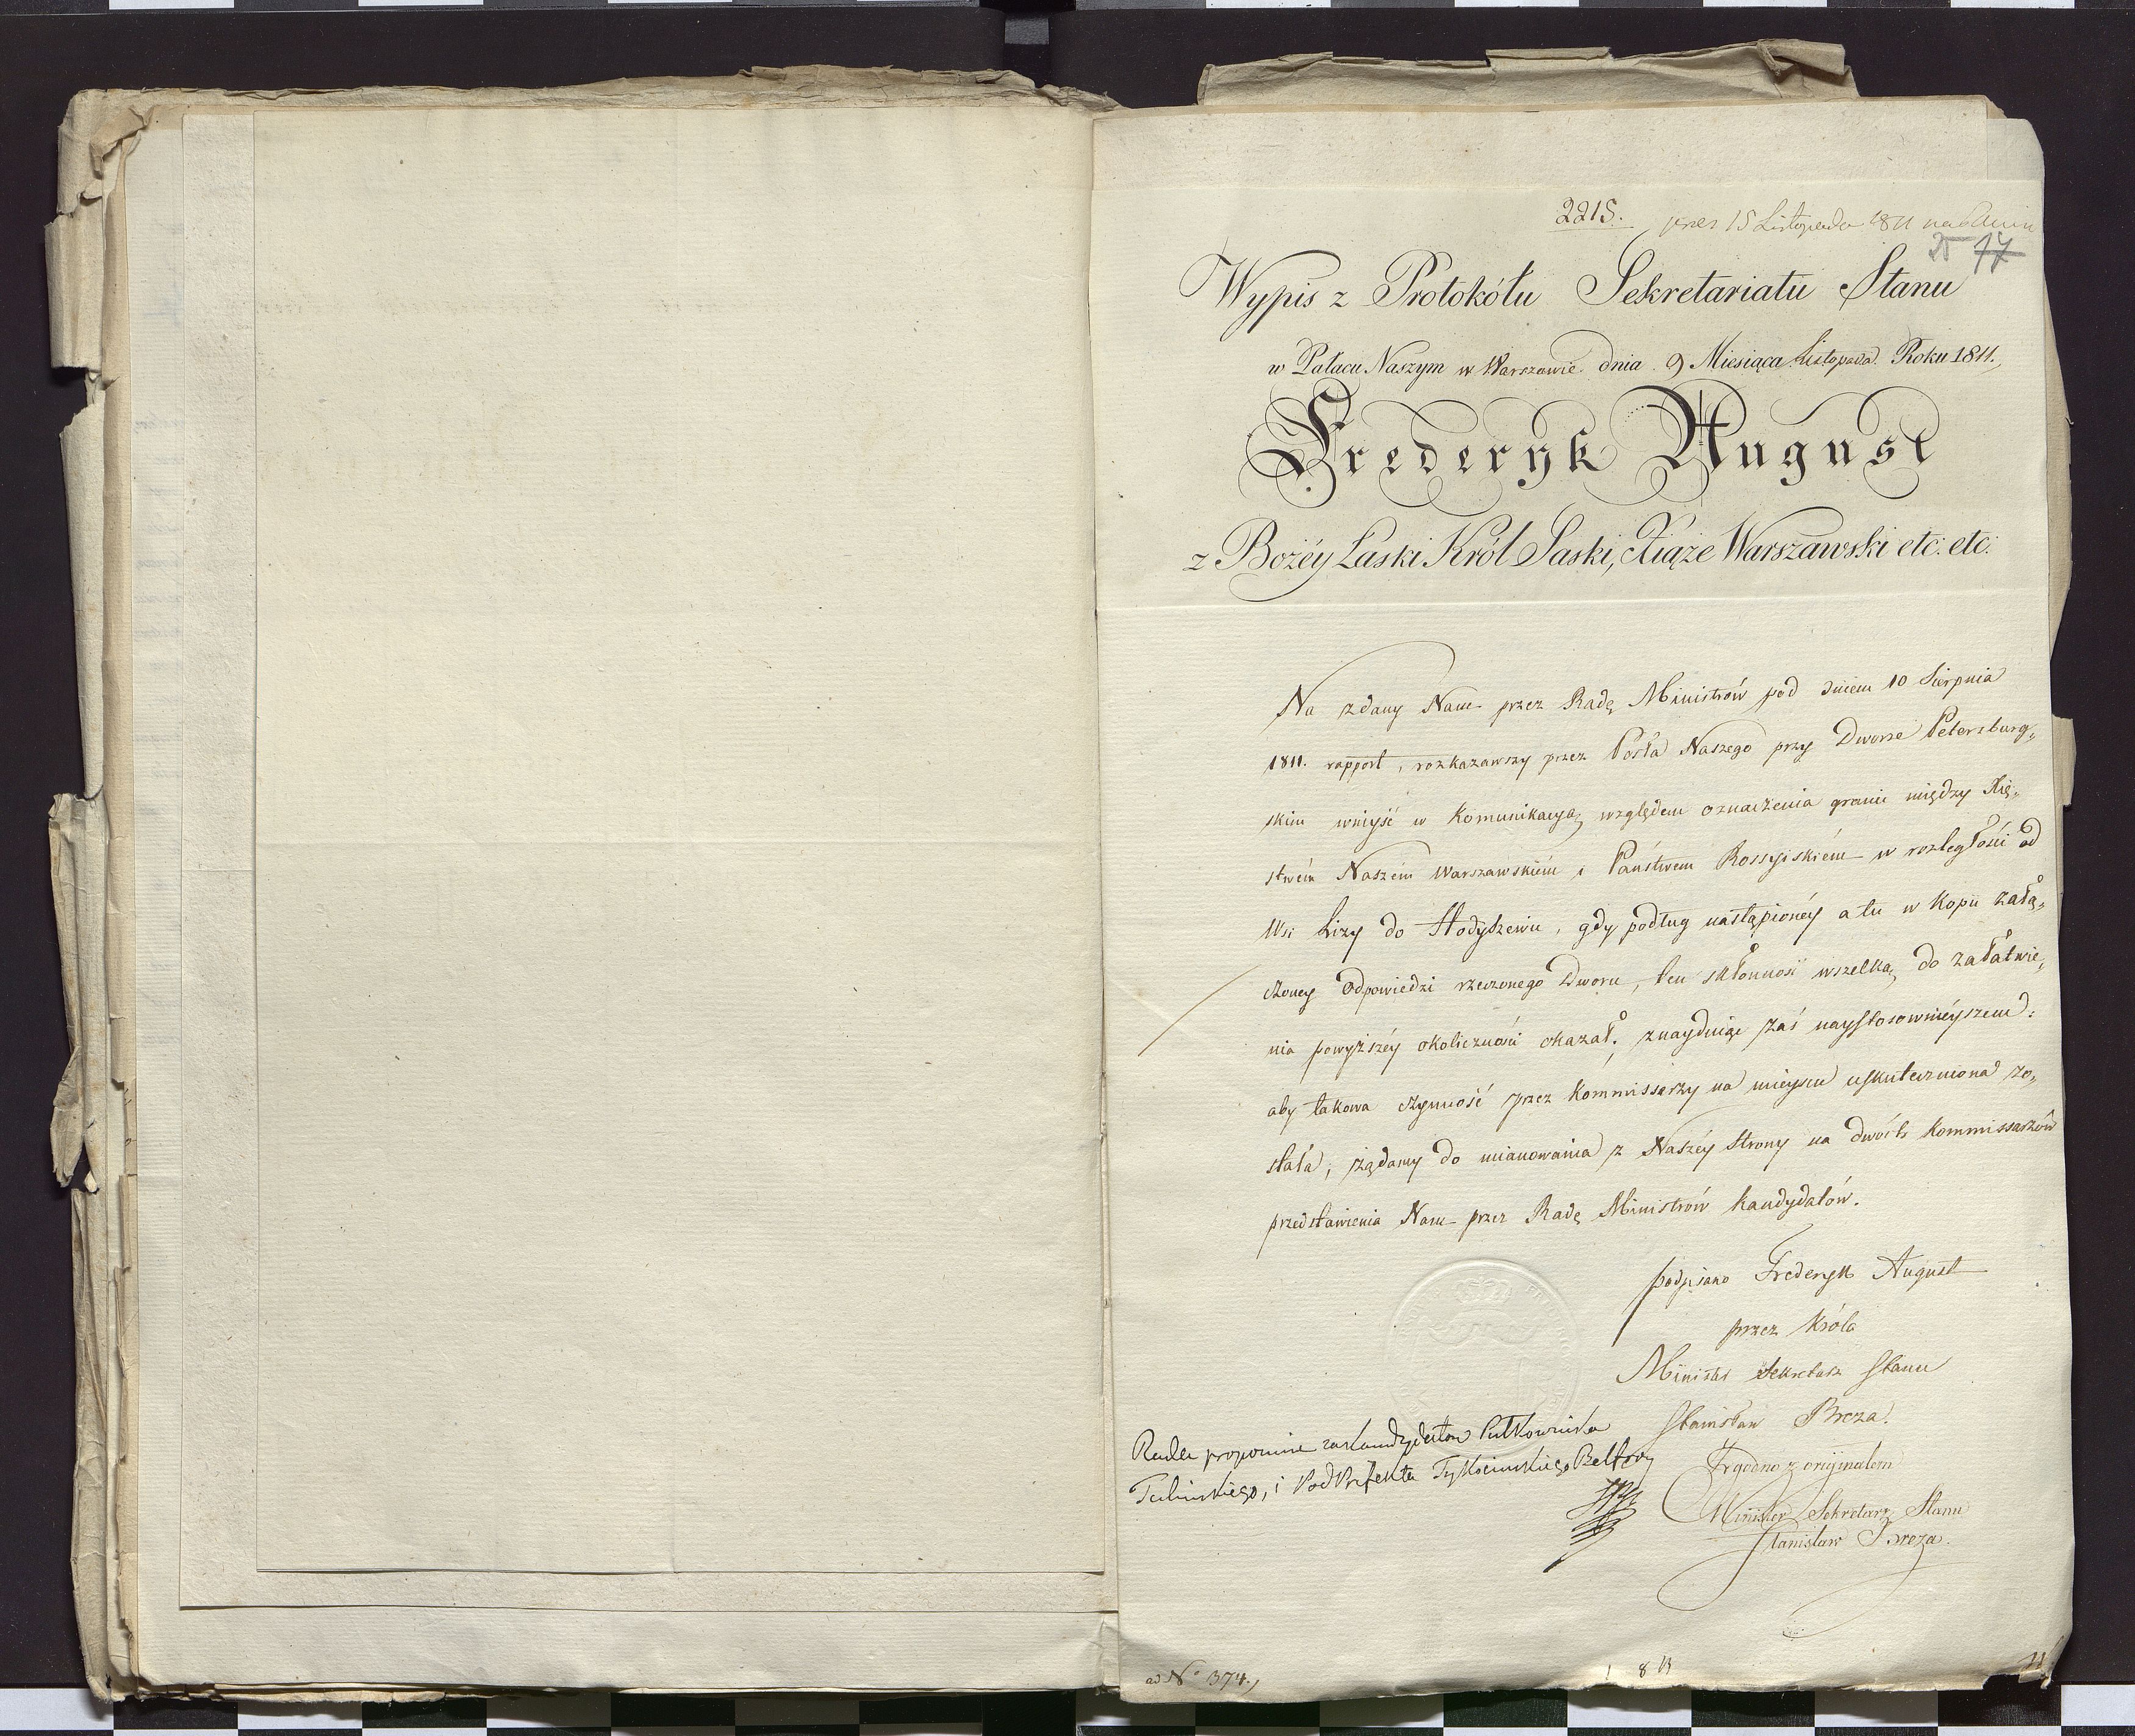 2215. prez 15 Listopada 1811
25 17
Wypis z Protokółu Sekretariatu Stanu
w Pałacu Naszym w Warszawie dnia 9 Miesiąca Listopada Roku 1811.
Frederyk August
z Bożéy Łaski Król Saski, Xiąże Warszawski etc: etc:
Na zdany Nam przez Radę Ministrów pod dniem 10 Sierpnia
1811. rapport, rozkazawszy przez Posła Naszego przy Dworze Petersburg„
skim wniyść w Kommunikacyą względem oznaczenia granic między Xię„
stwém Naszém Warszawskiém i Państwem Rossyiskiém w rozległości od
Wsi Lizy do Hodyszewa, gdy podług nastąpionéy a tu w Kopii załą„
czoney Odpowiedzi rzeczonego Dworu, ten skłonność wszelką do załatwie„
nia powyższéy okoliczności okazał; znayduiąc zaś naystosownieyszem:
aby takowa czynność przez Kommissarzy na mieyscu uskuteczniona zo„
stała, żądamy do mianowania z Naszéy Strony na dwóch Kommissarzów
przedstawienia Nam przez Radę Ministrów Kandydatów.
podpisano Frederyk August
przez Króla
Minister Sekretarz Stanu
Stanisław Breza.
Rada proponuie za Kandydatów Pułkownika
i Podprefekta Tykocinskiego
Zgodno z oryginałem
Minister Sekretarz Stanu
Stanisław Breza.
ad No 374.,
11